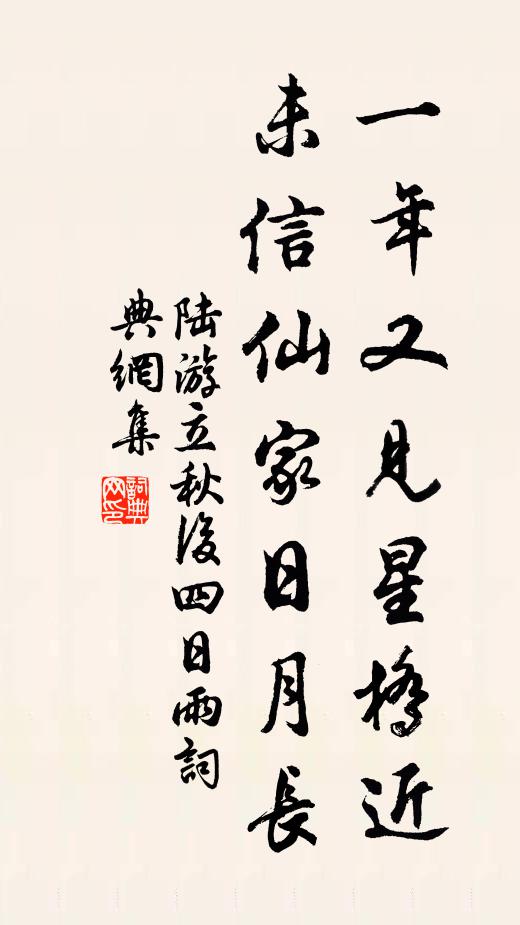 一年又見星橋近
未信仙家日月長
陸游立秋後四日雨詞
典網集
詞典网印